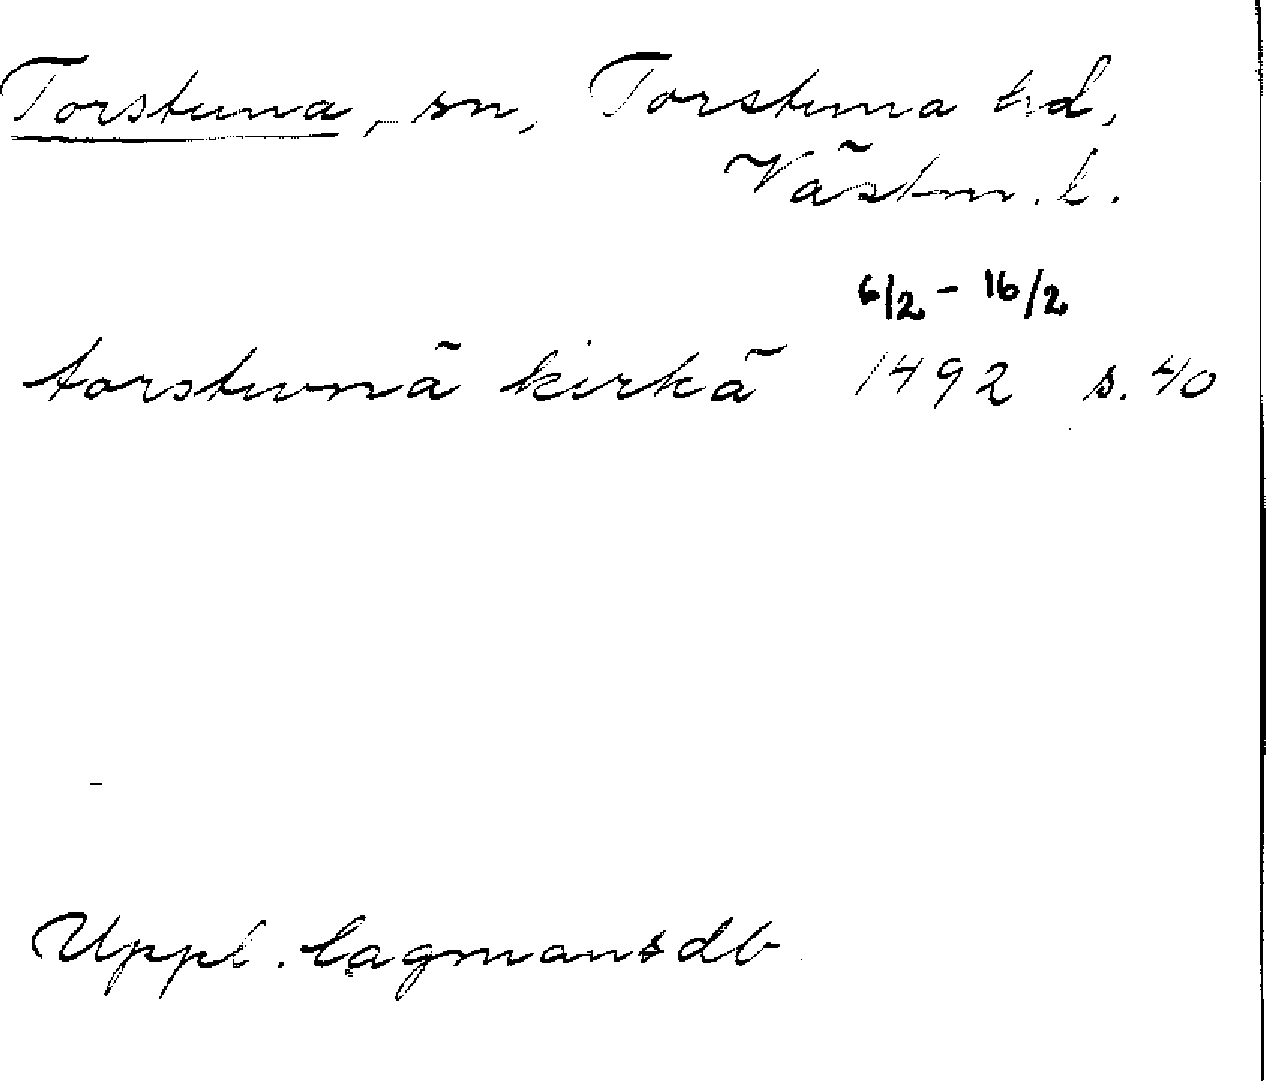 Torstuna, sn, Torstuna hd,
Västm. l.
6/2 - 16/2
torstvnä kirkä 1492 s. 40
Uppl. lagmansdb